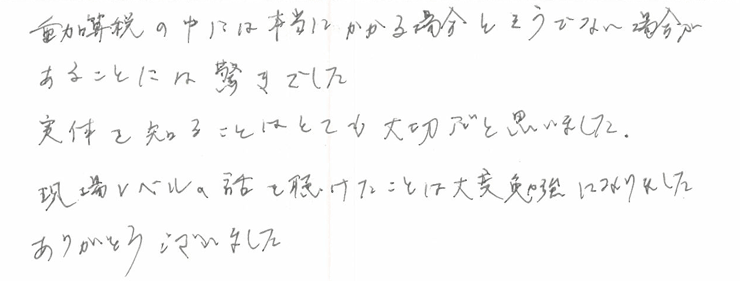 重加算税の中には本当にかかる場合とそうでない場合が
あることには驚きでした
実体を知ることはとても大切だと思いました.
現場レベルの話を聴けたことは大変勉強になりました
ありがとうございました